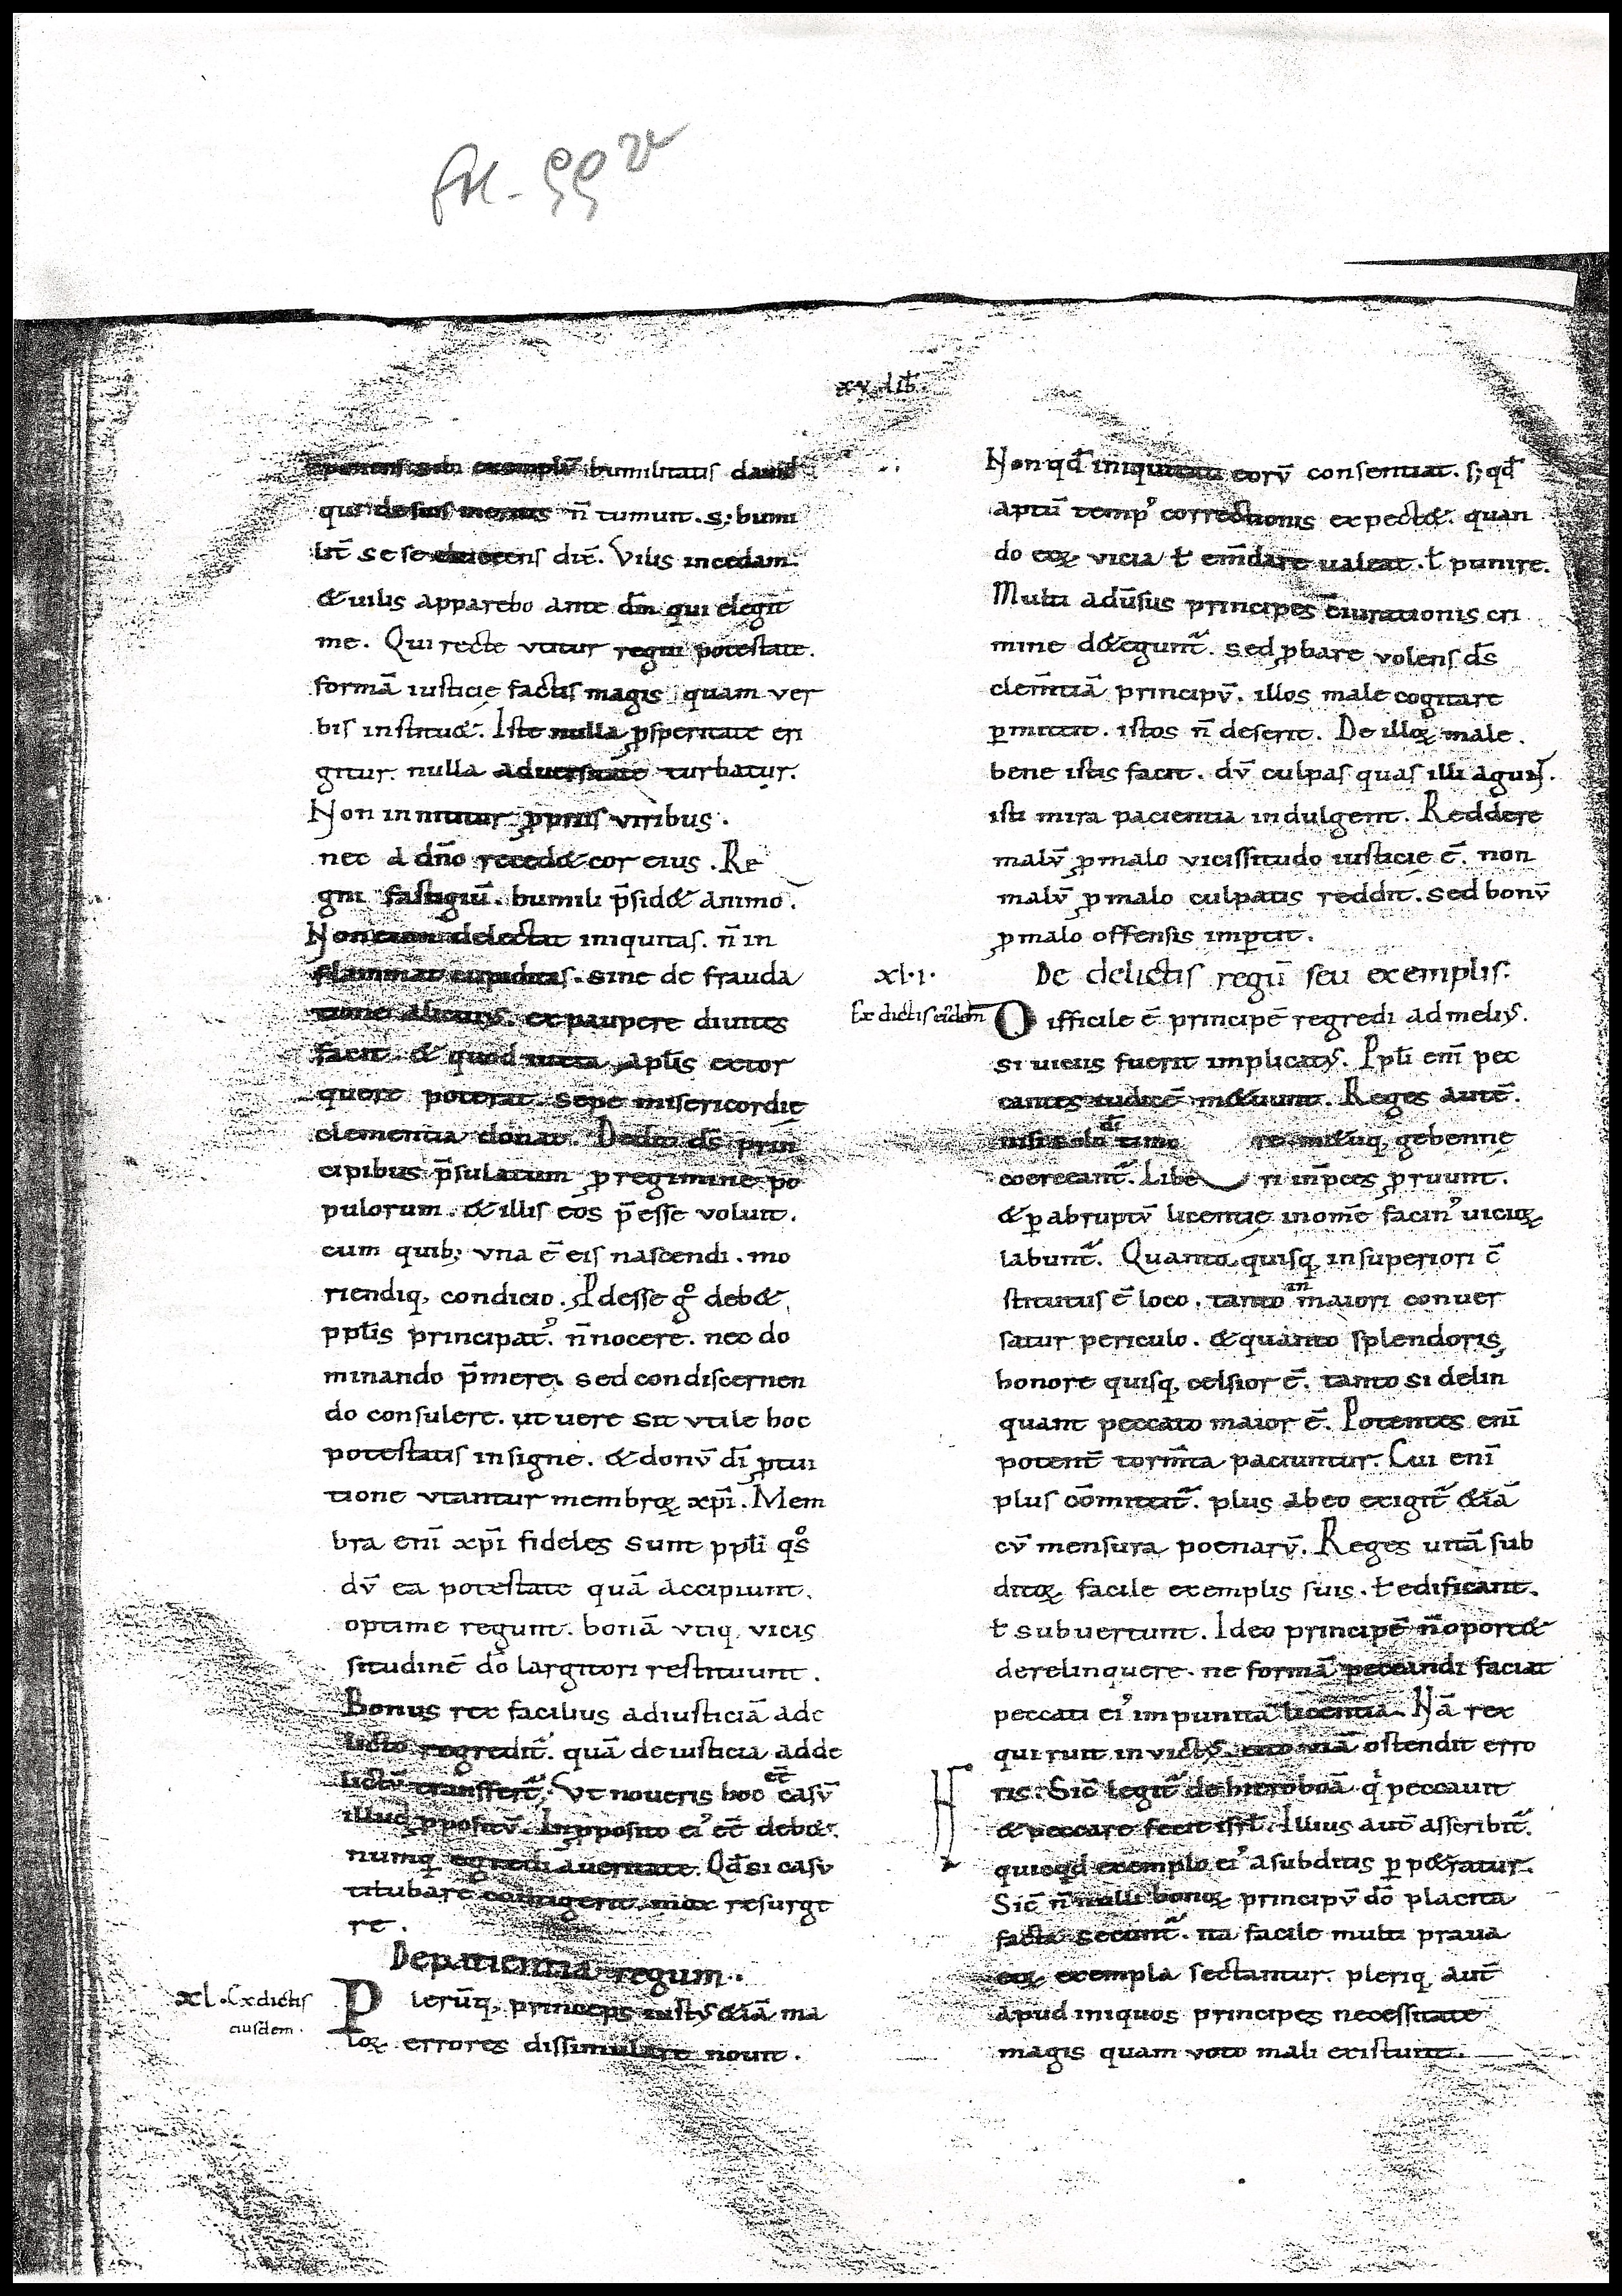 xv. lib̄.
ponens sibi exemplū humilitatis dauid
qui de suis meritis n̄ tumuit. s; humi
lit̄ sese deiciens dix̄. Vilis incedam.
& uilis apparebo ante dn̄m qui elegit
me. Qui recte vtitur regni potestate.
formā iusticię factis magis quam ver
bis institu&. Iste nulla ꝓsperitate eri
gitur. nulla aduersitate turbatur.
Non innititur ꝓpriis viribus.
nec a dn̄o reced& cor eius. Re
gni fastigiū. humili p̄sid& animo.
Non eum delectat iniquitas. n̄ in
flammat cupiditas. sine de frauda
tione alicui᷒. ex paupere diuites
facit. & quod iusta a pplīs extor
quere poterat. sepe misericordię
clementia donat. Dedit ds̄ prin
cipibus p̄sulatum ꝓ regimine po
pulorum. & illis eos p̄esse voluit.
cum quib; vna ē eis nascendi. mo
riendiq, condicio. Pdesse gͦ deb&
pplīs principat᷒. n̄ nocere. nec do
minando p̄mere. sed condiscernen
do consulere. ut uere sit vtile hoc
potestatis insigne. & donū dī ꝓ tui
tione vtantur membroꝝ xpī. Mem
bra enī xpī fideles sunt pplī qͦs
dū ea potestate quā accipiunt.
optime regunt. bonā vtiq, vicis
situdinē dō largitori restituunt.
Bonus rex facilius ad iusticiā a de
licto regredit᷑. quā de iusticia ad de
lictū transfert᷑. Vt noueris hoc ēē casū
illud ꝓpositū. In ꝓposito ei᷒ ēē deb&.
numq̄ egredi a ueritate. Qd̄ si casu
titubare contigerit. mox resurge
re.
De patientia regum.
xl. Ex dictis
eiusdem.
Plerūq, princeps iust᷒ &iā ma
loꝝ errores dissimulare nouit.
Non qd̄ iniquitati eorū consentiat. s; qd̄
aptū temp᷒ correctionis expect&. quan
do eoꝝ vicia ł em̄dare ualeat. ł punire.
Multi adūsus principes ciurationis cri
mine d&egunt᷑. sed ꝓbare volens ds̄
clem̄tiā principū. illos male cogitare
ꝑmittit. istos n̄ deserit. De illoꝝ male.
bene istis facit. dū culpas quas illi agunt.
isti mira pacientia indulgent. Reddere
malū ꝓ malo vicissitudo iusticie ē. non
malū ꝓ malo culpatis reddit. sed bonū
ꝓ malo offensis imꝑtit.
xl.i. De delictis regū seu exemplis.
Ex dictis eiūdem
Difficile ē principē regredi ad meli᷒.
si uiciis fuerit implicat᷒. Pplī enī pec
cantes iudicē m&uunt. Reges autē.
nisi solo dī timore m&uq, gehennę
coerceant᷑. Liberi in p̄ceps ꝓruunt.
& ꝑ abruptū licentię in om̄e facin᷒ uicioꝝ
labunt᷑. Quanto quisq, in superiori c̄
stitutus ē loco. tanto in maiori conuer
satur periculo. & quanto splendoris
honore quisq, celsior ē. tanto si delin
quant peccato maior ē. Potentes enī
potent̄ torm̄ta paciuntur. Cui enī
plus cōmittit᷑. plus ab eo exigit᷑ &iā
cū mensura poenarū. Reges uitā sub
ditoꝝ facile exemplis suis. ł edificant.
ł subuertunt. Ideo principē n̄ oport&
derelinquere. ne formā peccandi faciat
peccati ei᷒ impunita licentia. Nā rex
qui ruit in vici᷒. cito viā ostendit erro
ris. Sic̄ legit᷑ de hieroboā q̇ peccauit
& peccare fecit isrł. Illius aut̄ asscribit᷑.
quicqd exemplo ei᷒ a subditis ꝑp&ratur.
Sic̄ n̄nulli bonoꝝ principū dō placita
facta secunt᷑. ita facile multi praua
eoꝝ exempla sectantur. pleriq, aut̄
apud iniquos principes necessitate
magis quam voto mali existunt.